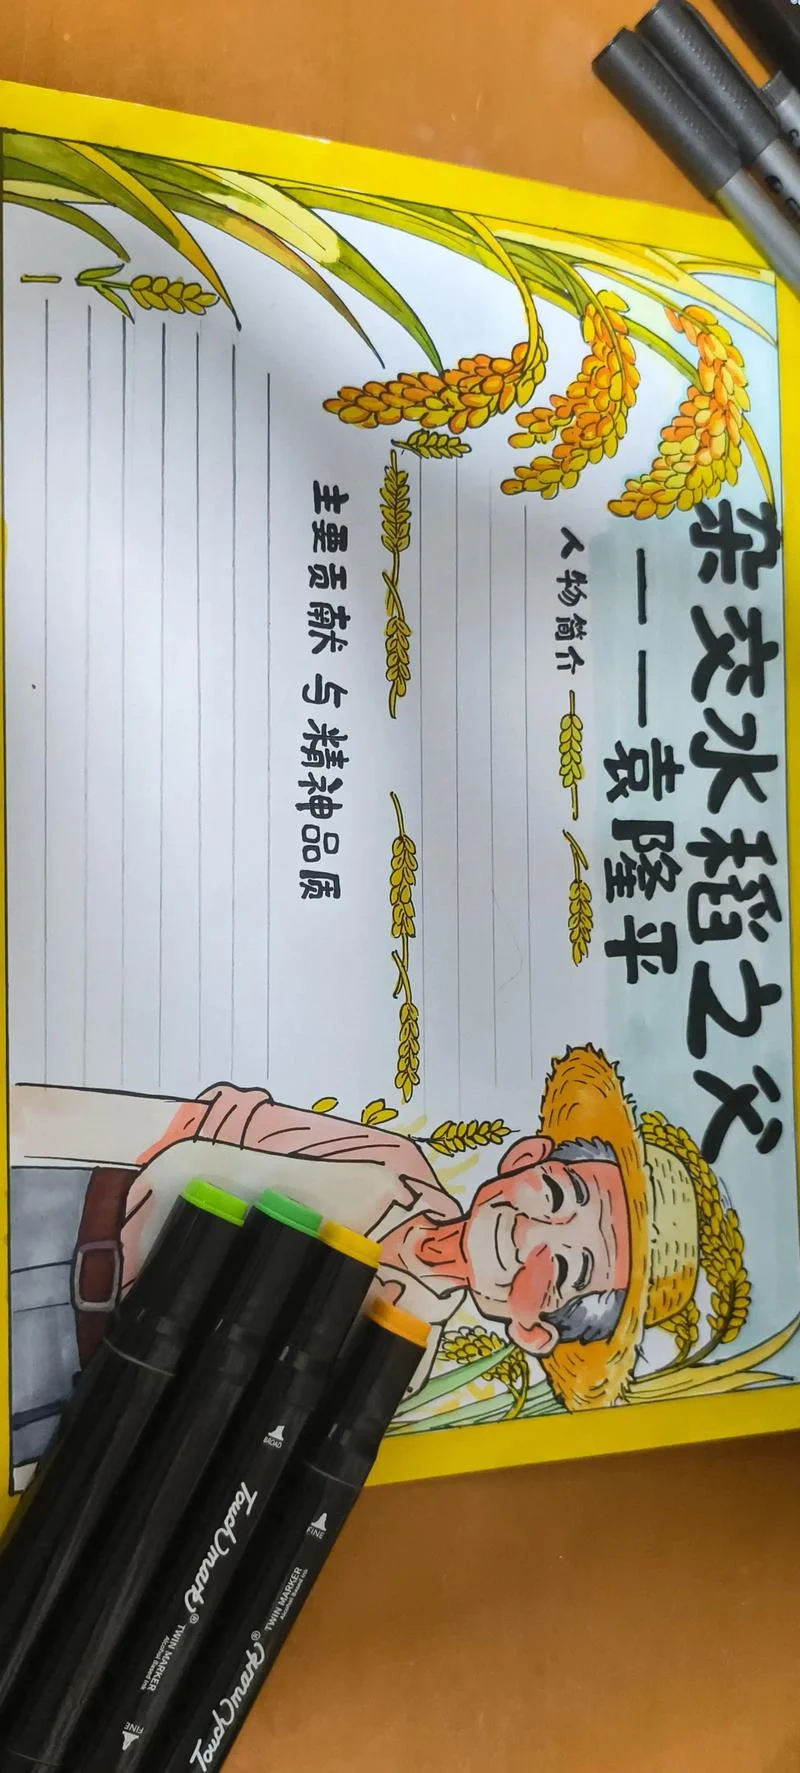 杂交水稻之父
——袁隆平
人物简介
主要贡献与精神品质
BROAD
Touchmark® TWIN MARKER
Alcohol Based Ink
FINE
FINE
Touchmark® TWIN MARKER
Alcohol Based Ink